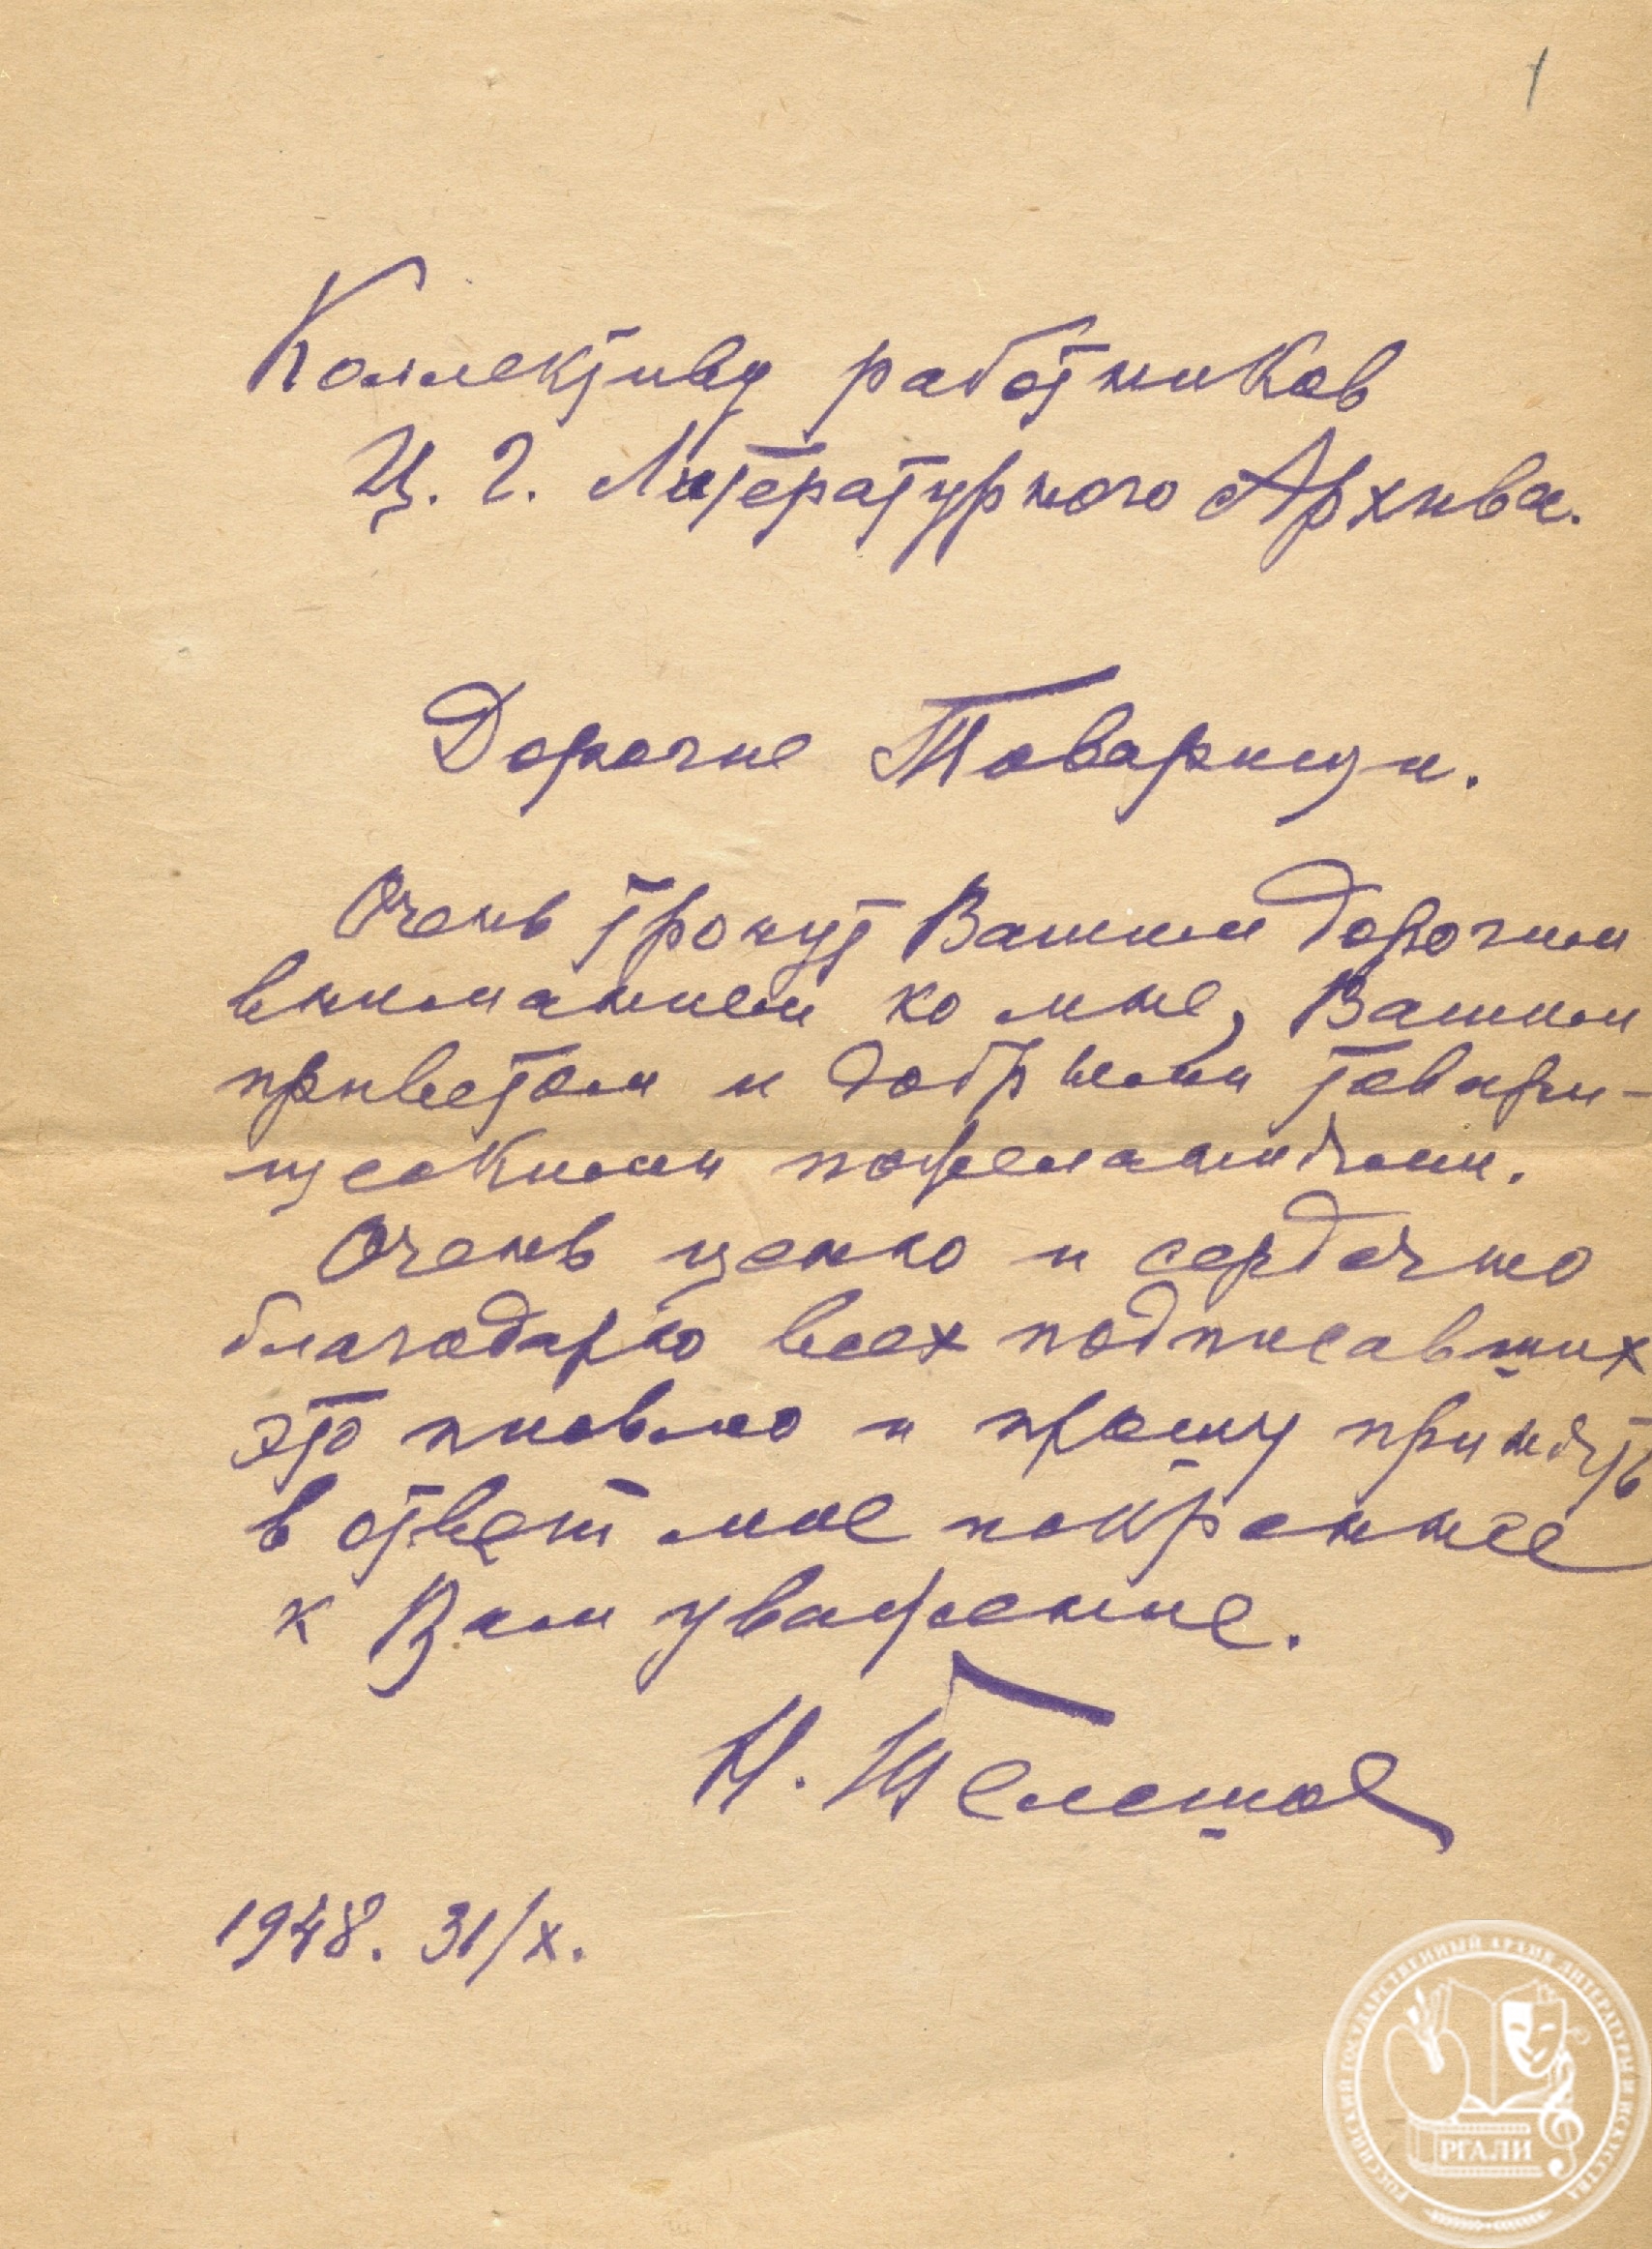 1
Коллективу работников
Ц. Г. Литературного Архива.
Дорогие Товарищи.
Очень тронут Вашим дорогим
вниманием ко мне, Вашим
приветом и добрыми товари-
щескими пожеланиями.
Очень ценю и сердечно
благодарю всех подписавших
это письмо и прошу принять
в ответ мое искреннее
к Вам уважение.
Н. Телешов
1948. 31/X.
РОССИЙСКИЙ ГОСУДАРСТВЕННЫЙ АРХИВ ЛИТЕРАТУРЫ И ИСКУССТВА
РГАЛИ